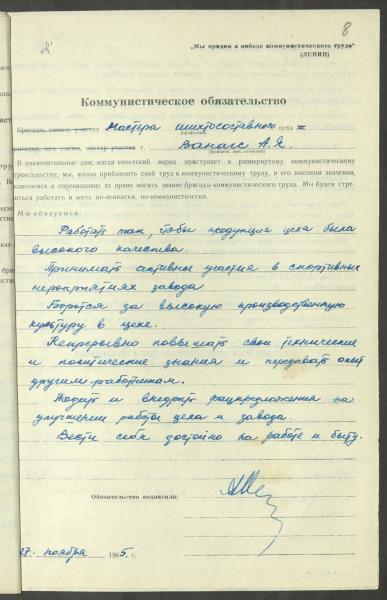 8
„Мы придем к победе коммунистического труда"
(ЛЕНИН)
Коммунистическое обязательство
Бригады, смены, участка Мастера шихтосоставного цеха
(профессия)
бригадир, нач. смены, мастер участка т. Ванагс А.Я.
(фамилия, имя, отчество)
В знаменательные дни, когда советский народ приступает к развернутому коммунистическому
строительству, мы, желая приблизить свой труд к коммунистическому труду, в его высоком значении,
включаемся в соревнование за право носить звание бригады коммунистического труда. Мы будем стре-
миться работать и жить по-ленински, по-коммунистически.
Мы обязуемся:
Работать так, чтобы продукция цеха была
высокого качества.
Принимать активные участия в спортивных
мероприятиях завода
Боротся за высокую производственную
культуру в цехе.
Непрерывно повышать свои технические
и политические знания и передавать опыт
другим работникам.
Подать и внедрить рацпредложения на
улучшении работы цеха и завода.
Вести себя достойно на работе и быту.
Обязательство подписали:
27. ноября 1965 г.